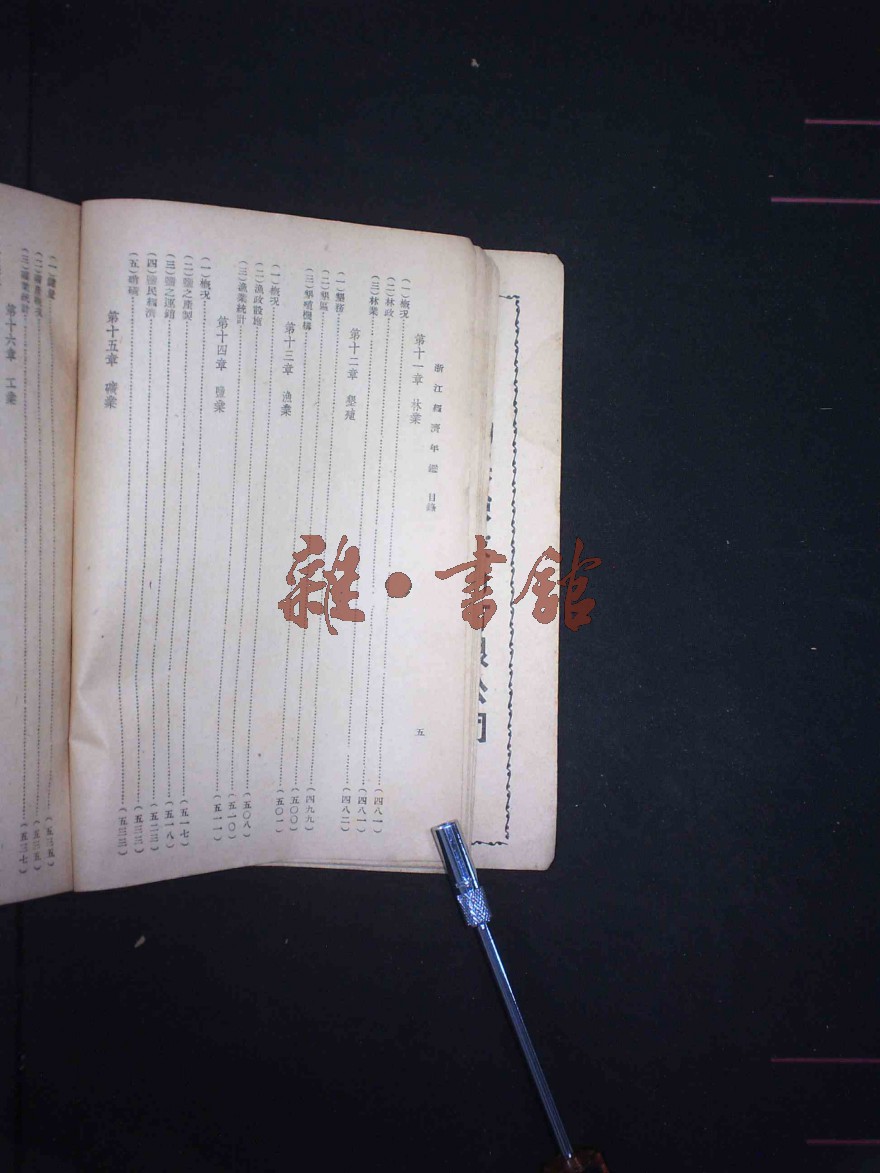 浙江經濟年鑑 目錄
五
第十一章 林業
(一)概況……(四八一)
(二)林政……(四八一)
(三)林業……(四八二)
第十二章 墾殖
(一)墾務
(二)墾區……(四九九)
(三)墾殖機構……(五〇〇)
第十三章 漁業
(一)概況……(五〇一)
(二)漁政設施……(五〇八)
(三)漁業統計……(五一〇)
第十四章 鹽業
(一)概況……(五一一)
(二)鹽之產製……(五一七)
(三)鹽之運銷……(五一八)
(四)鹽民經濟……(五二三)
(五)硝磺……(五三三)
第十五章 礦業
(三)礦業統計……(五三七)
第十六章 工業
限公司
雜·書館